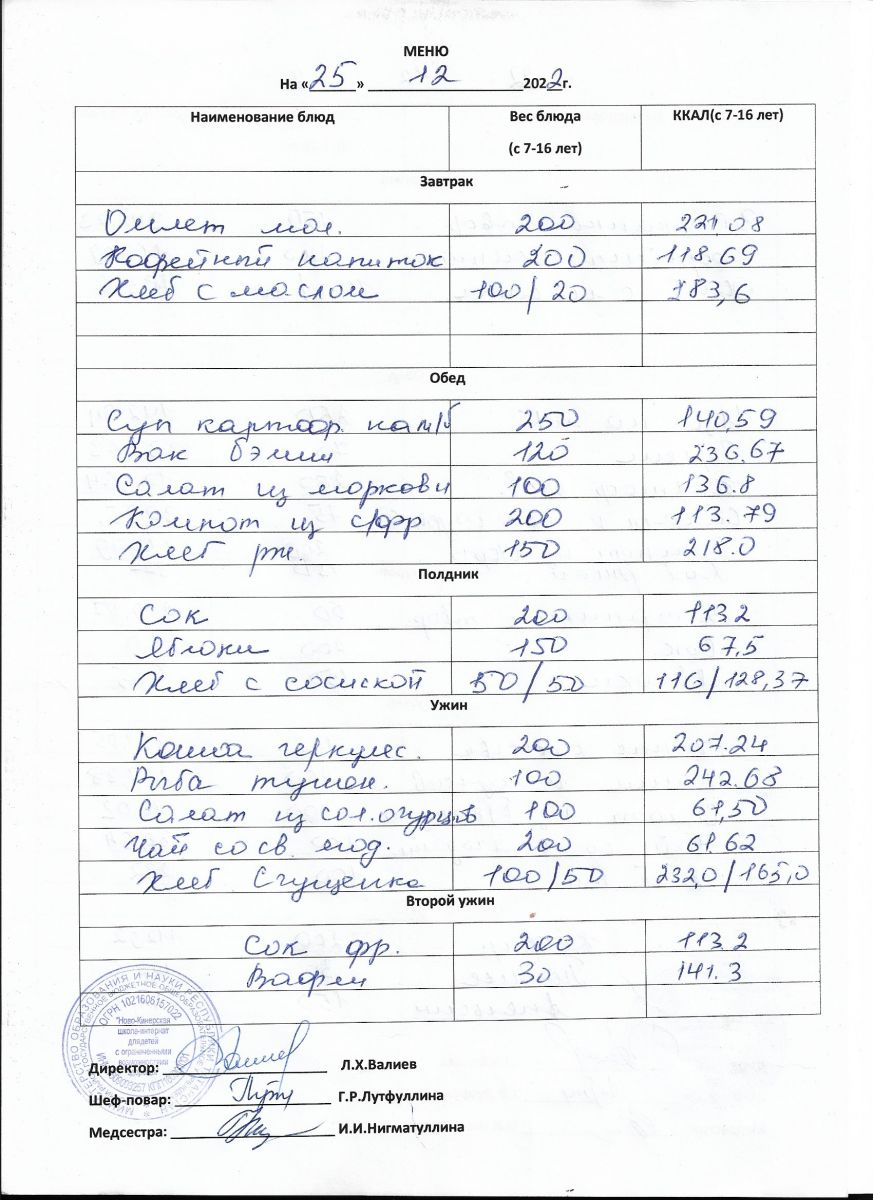 МЕНЮ
На «25» 12 2022г.
Наименование блюд Вес блюда (с 7-16 лет) ККАЛ(с 7-16 лет)
Завтрак
Омлет мол. 200 221,08
Кофейный напиток 200 118.69
Хлеб с маслом 100/20 183,6
Обед
Суп картоф. на м/б 250 140,59
Вак бэлиш 120 236.67
Салат из моркови 100 136.8
Компот из с/фр 200 113.79
Хлеб рж. 150 218.0
Полдник
Сок 200 113.2
Яблоки 150 67,5
Хлеб с сосиской 50/50 116/128,37
Ужин
Каша геркулес. 200 207.24
Рыба тушен. 100 242.68
Салат из сол.огурцов 100 61,50
Чай со св. мод. 200 61.62
Хлеб Сгущенка 100/50 232,0/165,0
Второй ужин
Сок фр. 200 113.2
Вафли 30 141.3
МИНИСТЕРСТВО ОБРАЗОВАНИЯ И НАУКИ РЕСПУБЛИКИ
ОГРН 1021606157022
"Ново-Кинерская
школа-интернат
для детей
с ограниченными
возможностями
Директор: Л.Х.Валиев
Шеф-повар: Г.Р.Лутфуллина
Медсестра: И.И.Нигматуллина